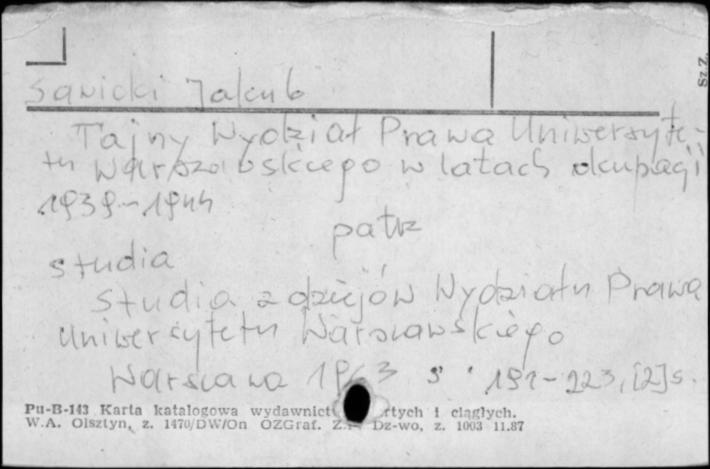 Sz Z.
Sawicki Jakub
Tajny Wydział Prawa Uniwersyte-
tu Warszawskiego w latach okupacji
1939-1944
patrz
studia
Studia z dziejów Wydziału Prawa
Uniwersytetu Warszawskiego
Warszawa 1963 s. 191-223, [2] s.
Pu-B-143 Karta katalogowa wydawnict rtych i ciągłych.
W.A. Olsztyn, z. 1470/DW/On OZGraf. Z. Dz-wo, z. 1003 11.87